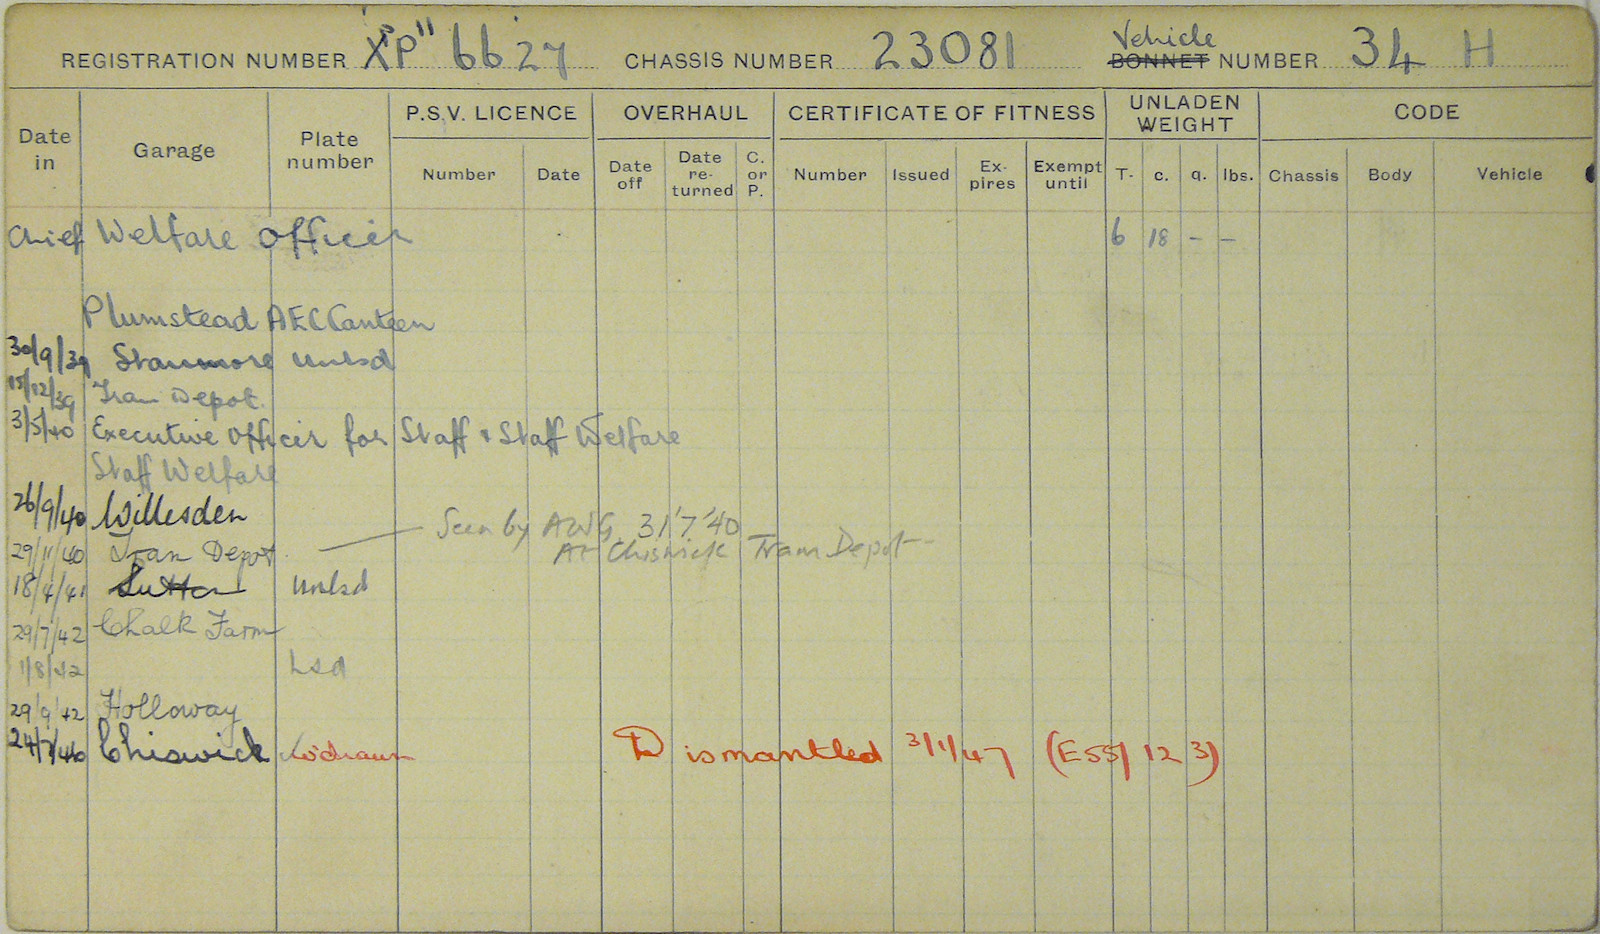 REGISTRATION NUMBER XP 6627 CHASSIS NUMBER 23081 Vehicle BONNET NUMBER 34 H
Date in Garage Plate number P.S.V. LICENCE OVERHAUL CERTIFICATE OF FITNESS UNLADEN WEIGHT CODE
Number Date Date off Date re-turned C. or P. Number Issued Ex-pires Exempt until T. c. q. lbs. Chassis Body Vehicle
Chief Welfare Officer 6 18 - -
Plumstead AEC Canteen
30/9/39 Stanmore unlsd
15/12/39 Tram Depot.
3/5/40 Executive Officer for Staff & Staff Welfare
Staff Welfare
26/9/40 Willesden
Seen by AWG 31'7'40
29/11/40 Tram Depot
At Chiswick Tram Depot
18/4/41 Sutton unlsd
29/7/42 Chalk Farm
1/8/42 Lsd
29/9/42 Holloway
24/7/46 Chiswick Wdrawn Dismantled 3/1/47 (E55/123)